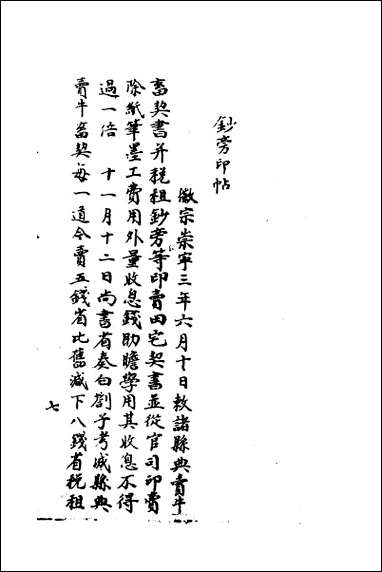 鈔旁印帖
徽宗崇寧三年六月十日敕諸縣典賣牛
畜契書并稅租鈔旁等印賣田宅契書並從官司印賣
除紙筆墨工費用外量收息錢助贍學用其收息不得
過一倍 十一月十二日尚書省奏白劄子考城縣典
賣牛畜契每一道令賣五錢省比舊減下八錢省稅租
七